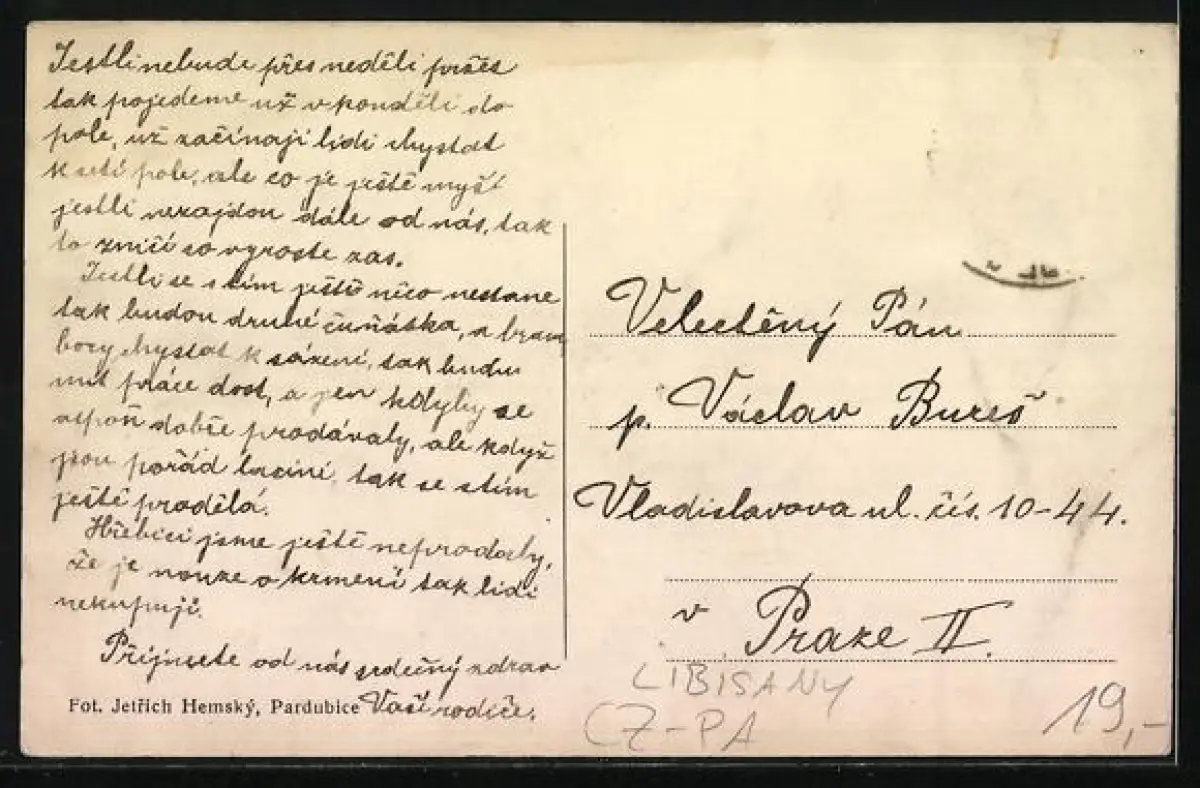 Jestli nebude přes neděli pršet
tak pojedeme už v ponděli do
pole, už začínají lidi chystat
k setí pole, ale co je ještě myší
jestli nezajdou dále od nás, tak
to zničí co vyroste zas.
Jestli se s tím ještě něco nestane
tak budou druhé čuňátka, a bram
bory chystat k sázení, tak budu
mít práce dost, a jen kdyby se
aspoň dobře prodávaly, ale když
jsou pořád laciné, tak se s tím
ještě prodělá.
Hřebici jsme ještě neprodaly,
že je nouze o krmení tak lidi
nekupují.
Přijmete od nás srdečný zdrav
Vaší rodiče.
Fot. Jetřich Hemský, Pardubice
Velectěný Pán
p. Václav Bureš
Vladislavova ul. čís. 10-44.
v Praze II.
LIBISANY
CZ-PA
19,-